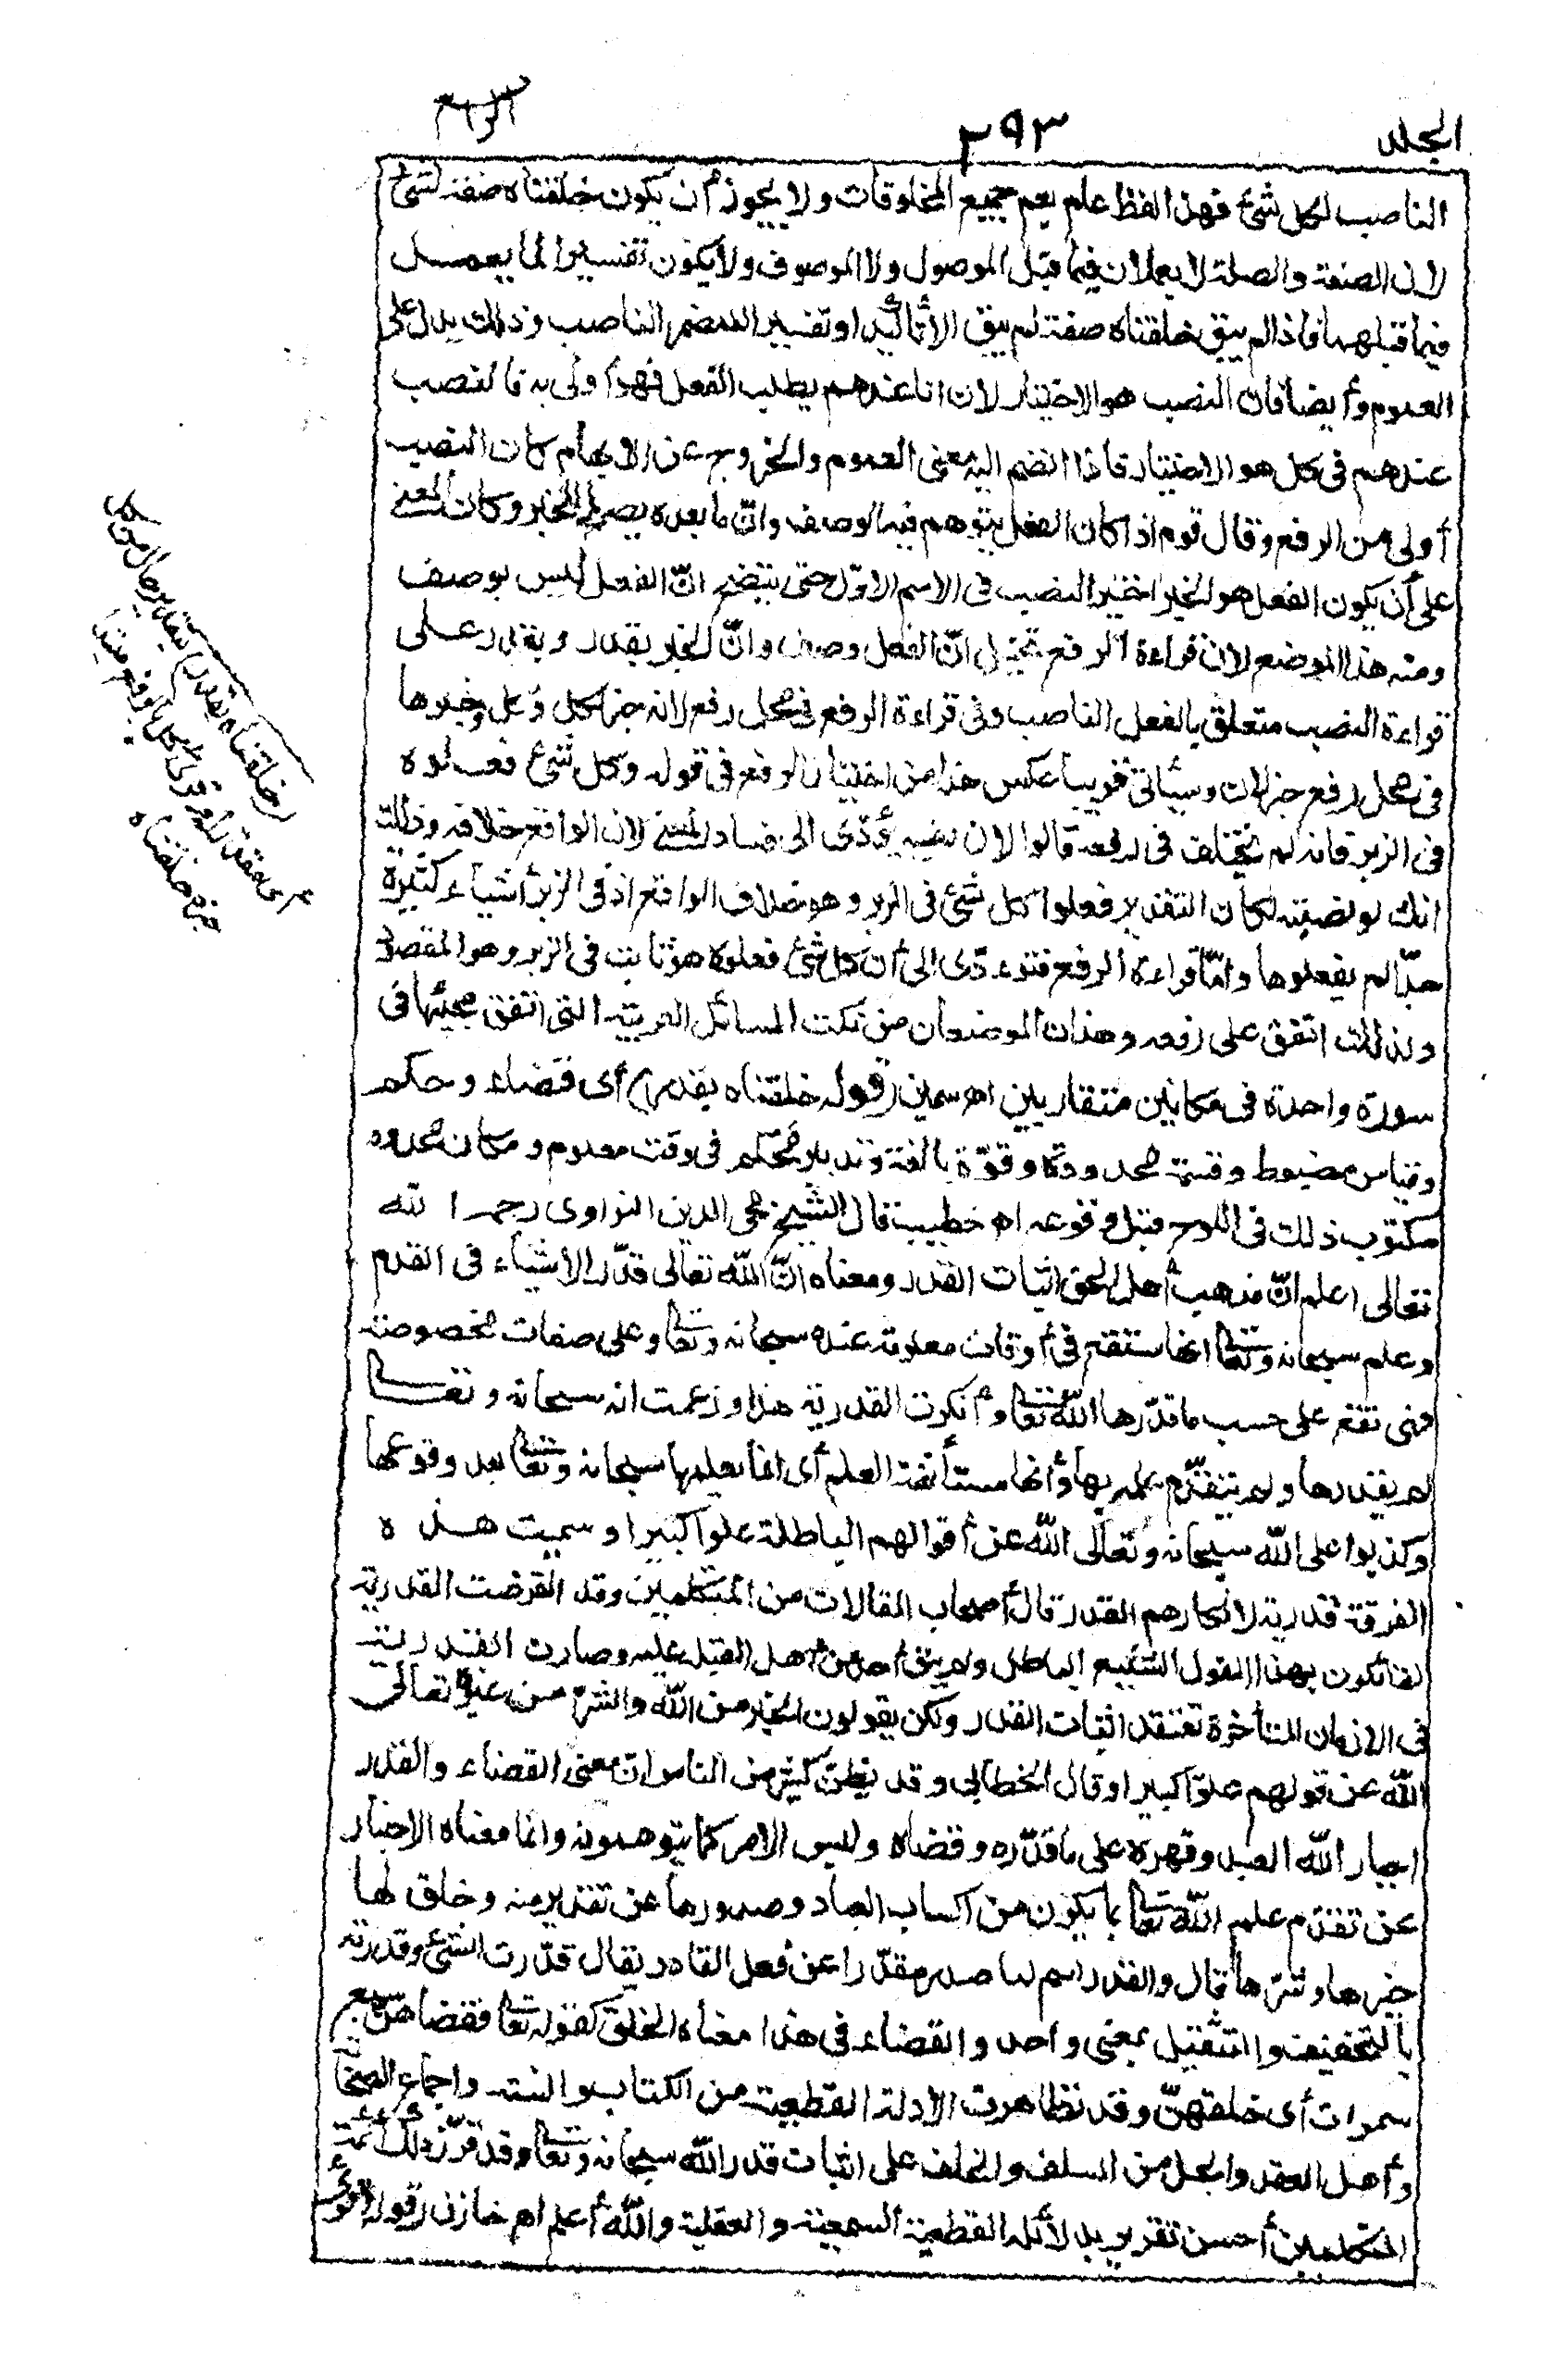 الجلد
٢٩٣
الرابع
الناصب لكل شئ فهذا لفظ عام يعم جميع المخلوقات ولا يجوز أن يكون خلقناه صفة لشئ
لان الصفة والصلة لا يعملان فيما قبل الموصول ولا الموصوف ولا يكون تفسيرا لما يعمل
فيما قبلهما فاذا لم يبق خلقناه صفة لم يبق الا تأكيدا وتفسيرا للمضمر الناصب وذلك يدل على
العموم وأيضا فان النصب هو الاختيار لان انا عندهم يطلب الفعل فهو أولى به فالنصب
عندهم فى كل هو الاختيار فاذا انضم اليه معنى العموم والخروج عن الابهام كان النصب
أولى من الرفع وقال قوم اذا كان الفعل يتوهم فيه الوصف وانّ ما بعده يصلح للخبر وكان المعنى
على أن يكون الفعل هو الخبر اختير النصب فى الاسم الاوّل حتى يتضح انّ الفعل ليس بوصف
ومنه هذا الموضع لان قراءة الرفع تخيل انّ الفعل وصف وانّ الخبر بقدر وبقدر على
قراءة النصب متعلق بالفعل الناصب وفى قراءة الرفع فى محل رفع لانه خبر لكل وكل وخبرها
فى محل رفع خبر لان وسيأتى قريبا عكس هذا من اختيار الرفع فى قوله وكل شئ فعلوه
فى الزبر فانه لم يختلف فى رفعه قالوا لان نصبه يؤدّى الى فساد المعنى لان الواقع خلافه وذلك
انك لو نصبته لكان التقدير فعلوا كل شئ فى الزبر وهو خلاف الواقع اذ فى الزبر أشياء كثيرة
جدّا لم يفعلوها وأمّا قراءة الرفع فتؤدّى الى أن كل شئ فعلوه هو ثابت فى الزبر وهو المقصود
ولذلك اتفق على رفعه وهذان الموضعان من نكت المسائل العربية التى اتفق مجيئها فى
سورة واحدة فى مكانين متقاربين اه سمين (قوله خلقناه بقدر) أى قضاء وحكم
وقياس مضبوط وقسمة محدودة وقوّة بالغة وتدبير محكم فى وقت معلوم ومكان محدود
مكتوب ذلك فى اللوح قبل وقوعه اه خطيب قال الشيخ محى الدين النواوى رحمه الله
تعالى اعلم انّ مذهب أهل الحق اثبات القدر ومعناه انّ الله تعالى قدّر الأشياء فى القدم
وعلم سبحانه وتعالى انها ستقع فى أوقات معلومة عنده سبحانه وتعالى وعلى صفات مخصوصة
فهى تقع على حسب ما قدّرها الله تعالى وأنكرت القدرية هذا وزعمت انه سبحانه وتعالى
لم يقدرها ولم يتقدّم علمه بها وأنها مستأنفة العلم أى انما يعلمها سبحانه وتعالى بعد وقوعها
وكذبوا على الله سبحانه وتعالى الله عن أقوالهم الباطلة علوا كبيرا وسميت هذه
الفرقة قدرية لانكارهم القدر قال أصحاب المقالات من المتكلمين وقد انقرضت القدرية
القائلون بهذا القول الشنيع الباطل ولم يبق أحد من أهل القبلة عليه وصارت القدرية
فى الازمان المتأخرة تعتقد اثبات القدر ولكن يقولون الخير من الله والشرّ من غيره تعالى
الله عن قولهم علوّا كبيرا وقال الخطابى وقد يظنّ كثير من الناس انّ معنى القضاء والقدر
اجبار الله العبد وقهره على ما قدّره وقضاه وليس الامر كما يتوهمونه وانما معناه الاخبار
عن تقدّم علم الله تعالى بما يكون من اكساب العباد وصدورها عن تقدير منه وخلق لها
خيرها وشرّها قال والقدر اسم لما صدر مقدّرا عن فعل القادر يقال قدّرت الشئ وقدرته
بالتخفيف والتثقيل بمعنى واحد والقضاء فى هذا معناه الخلق كقوله تعالى فقضاهنّ سبع
سموات أى خلقهنّ وقد تظاهرت الأدلة القطعية من الكتاب والسنة واجماع الصحابة
وأهل العقد والحل من السلف والخلف على اثبات قدر الله سبحانه وتعالى وقد قرّر ذلك أئمة
المتكلمين أحسن تقرير بدلائله القطعية السمعية والعقلية والله أعلم اه خازن (قوله
(خلقناه بقدر) بتقدير حال من كل
أى مقدّرا وقرئ كل بالرفع مبتدأ
خبره خلقناه